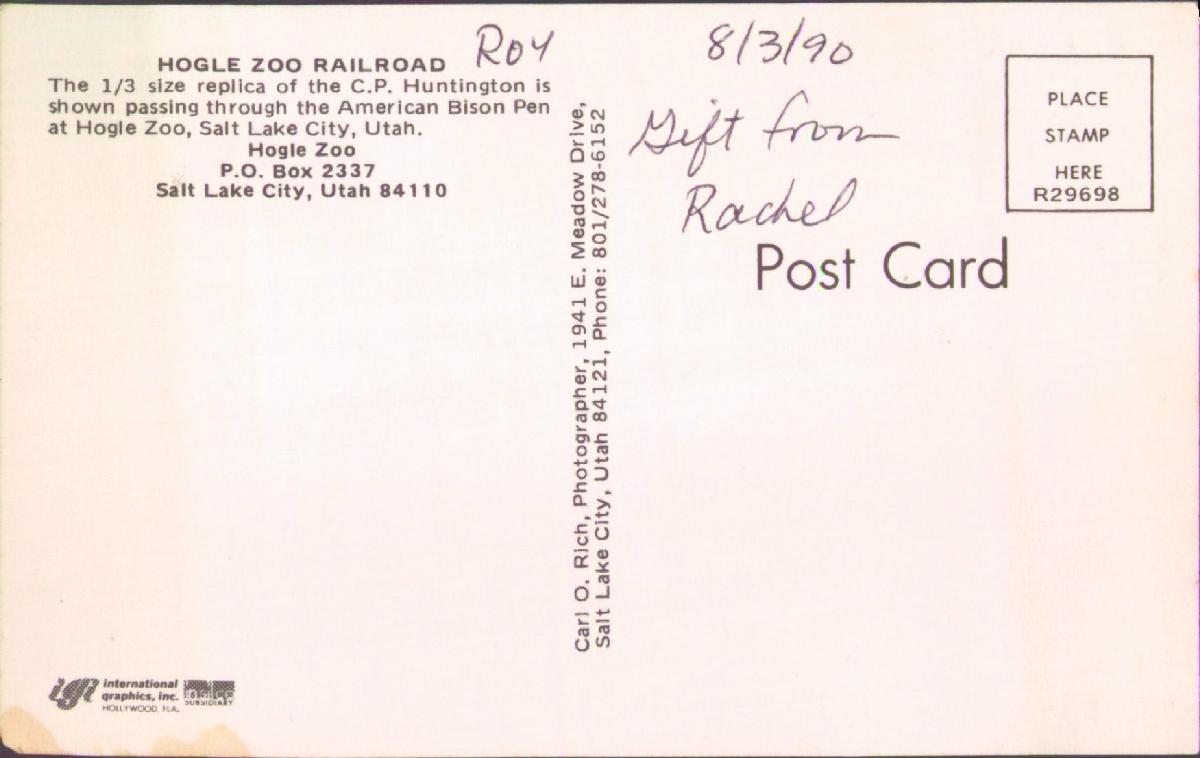 HOGLE ZOO RAILROAD
The 1/3 size replica of the C.P. Huntington is
shown passing through the American Bison Pen
at Hogle Zoo, Salt Lake City, Utah.
Hogle Zoo
P.O. Box 2337
Salt Lake City, Utah 84110
ROY
Carl O. Rich, Photographer, 1941 E. Meadow Drive,
Salt Lake City, Utah 84121, Phone: 801/278-6152
8/3/90
Gift from
Rachel
PLACE
STAMP
HERE
R29698
Post Card
igi international
graphics, inc.
HOLLYWOOD, FLA.
SUBSIDIARY